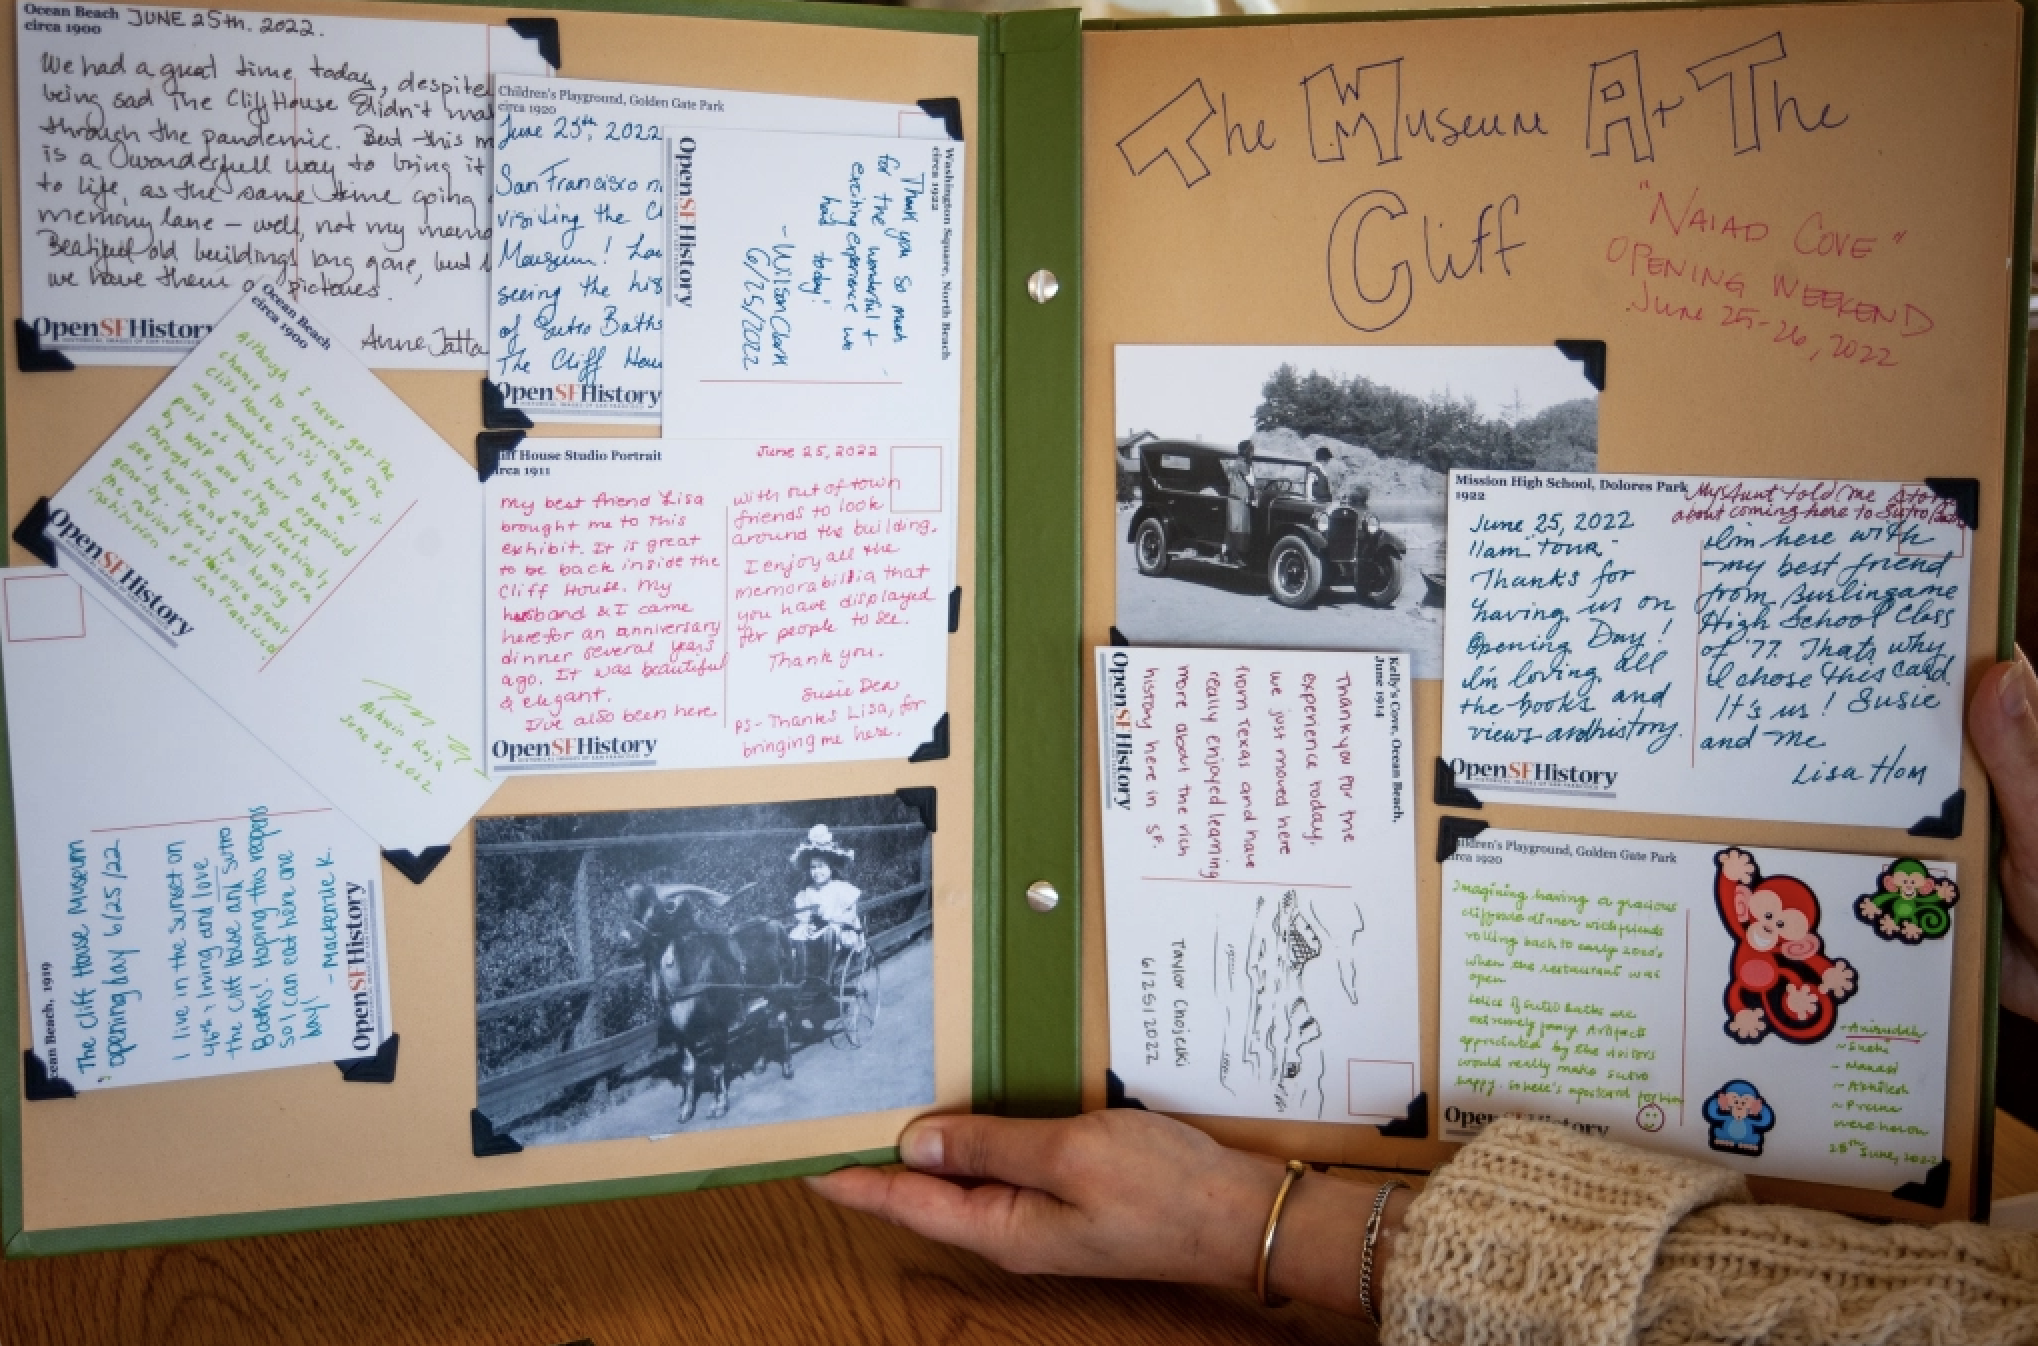 Ocean Beach
circa 1900
JUNE 25th. 2022.
We had a great time today, despite
being sad The Cliff House didn't
through the pandemic. But this
is a wonderfull way to bring it
to life, as the same time going
memory lane – well, not my
Beatiful old buildings long gone, but
we have them pictures.
Anne
OpenSFHistory
HISTORICAL IMAGES OF SAN FRANCISCO
Children's Playground, Golden Gate Park
circa 1920
June 25th, 2022
San Francisco
visiting the
Mouseum!
seeing the
of Sutro Baths
The Cliff
OpenSFHistory
HISTORICAL IMAGES OF SAN FRANCISCO
Washington Square, North Beach
circa 1922
Thank you so much
for the wonderful +
exciting experience we
had today!
- Wilson Clark
6/25/2022
OpenSFHistory
Ocean Beach
circa 1900
Although I never got the
chance to experience the
Cliff House in it's heyday, it
was wonderful to be a
part of this tour organised
by WNP and step back
through time and
see, hear, and smell an era
gone-by. Here's to hoping
the revival of this once great
institution of San Francisco!
Ashwin Raja
June 25, 2022
OpenSFHistory
House Studio Portrait
circa 1911
June 25, 2022
My best friend Lisa
brought me to this
exhibit. It is great
to be back inside the
Cliff House. My
husband & I came
here for an anniversary
dinner several years
ago. It was beautiful
& elegant.
I've also been here
with out of town
friends to look
around the building.
I enjoy all the
memorabilia that
you have displayed
for people to see.
Thank you.
Susie Dea
PS- Thanks Lisa, for
bringing me here.
OpenSFHistory
HISTORICAL IMAGES OF SAN FRANCISCO
Beach, 1919
The Cliff House Museum
opening day 6/25/22
I live in the Sunset on
46th & Irving and love
the Cliff House and Sutro
Baths! Hoping this reopens
so I can eat here one
day! - Mackenzie K.
OpenSFHistory
The Museum At The
Cliff
"NAIAD COVE"
OPENING WEEKEND
June 25-26, 2022
Mission High School, Dolores Park
1922
My Aunt told me
about coming here to Sutro
June 25, 2022
11am "Tour"
Thanks for
having us on
Opening Day!
I'm loving all
the books and
views and history.
I'm here with
my best friend
from Burlingame
High School Class
of '77. Thats why
I chose this card.
It's us! Susie
and me
Lisa Hom
OpenSFHistory
HISTORICAL IMAGES OF SAN FRANCISCO
Kelly's Cove, Ocean Beach,
June 1914
Thank you for the
experience today.
we just moved here
from Texas and have
really enjoyed learning
more about the rich
history here in SF.
Taylor Chojecki
6/25/2022
OpenSFHistory
Children's Playground, Golden Gate Park
circa 1920
Imagining having a gracious
cliffside dinner with friends
rolling back to early 2000's
when the restaurant was
open
of Sutro Baths are
extremely Artifacts
appreciated by the visitors
would really make Sutro
happy. So here's a postcard for him
- Aniruddh
~ Manasi
~ Akhilesh
~ Prerna
were here on
25th June, 2022
OpenSFHistory